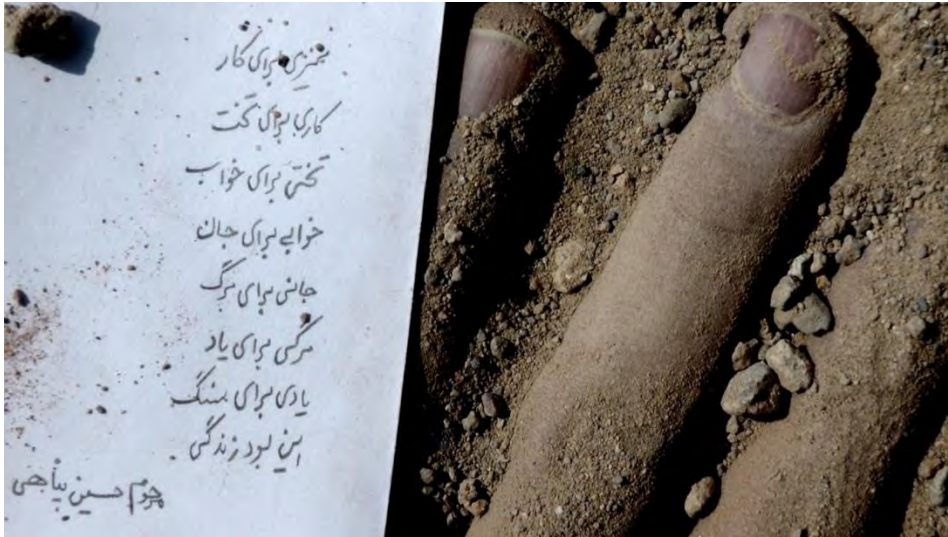 میزی برای کار
کاری برای تخت
تختی برای خواب
خوابی برای جان
جانی برای مرگ
مرگی برای یاد
یادی برای سنگ
این بود زندگی.
مرحوم حسین پناهی